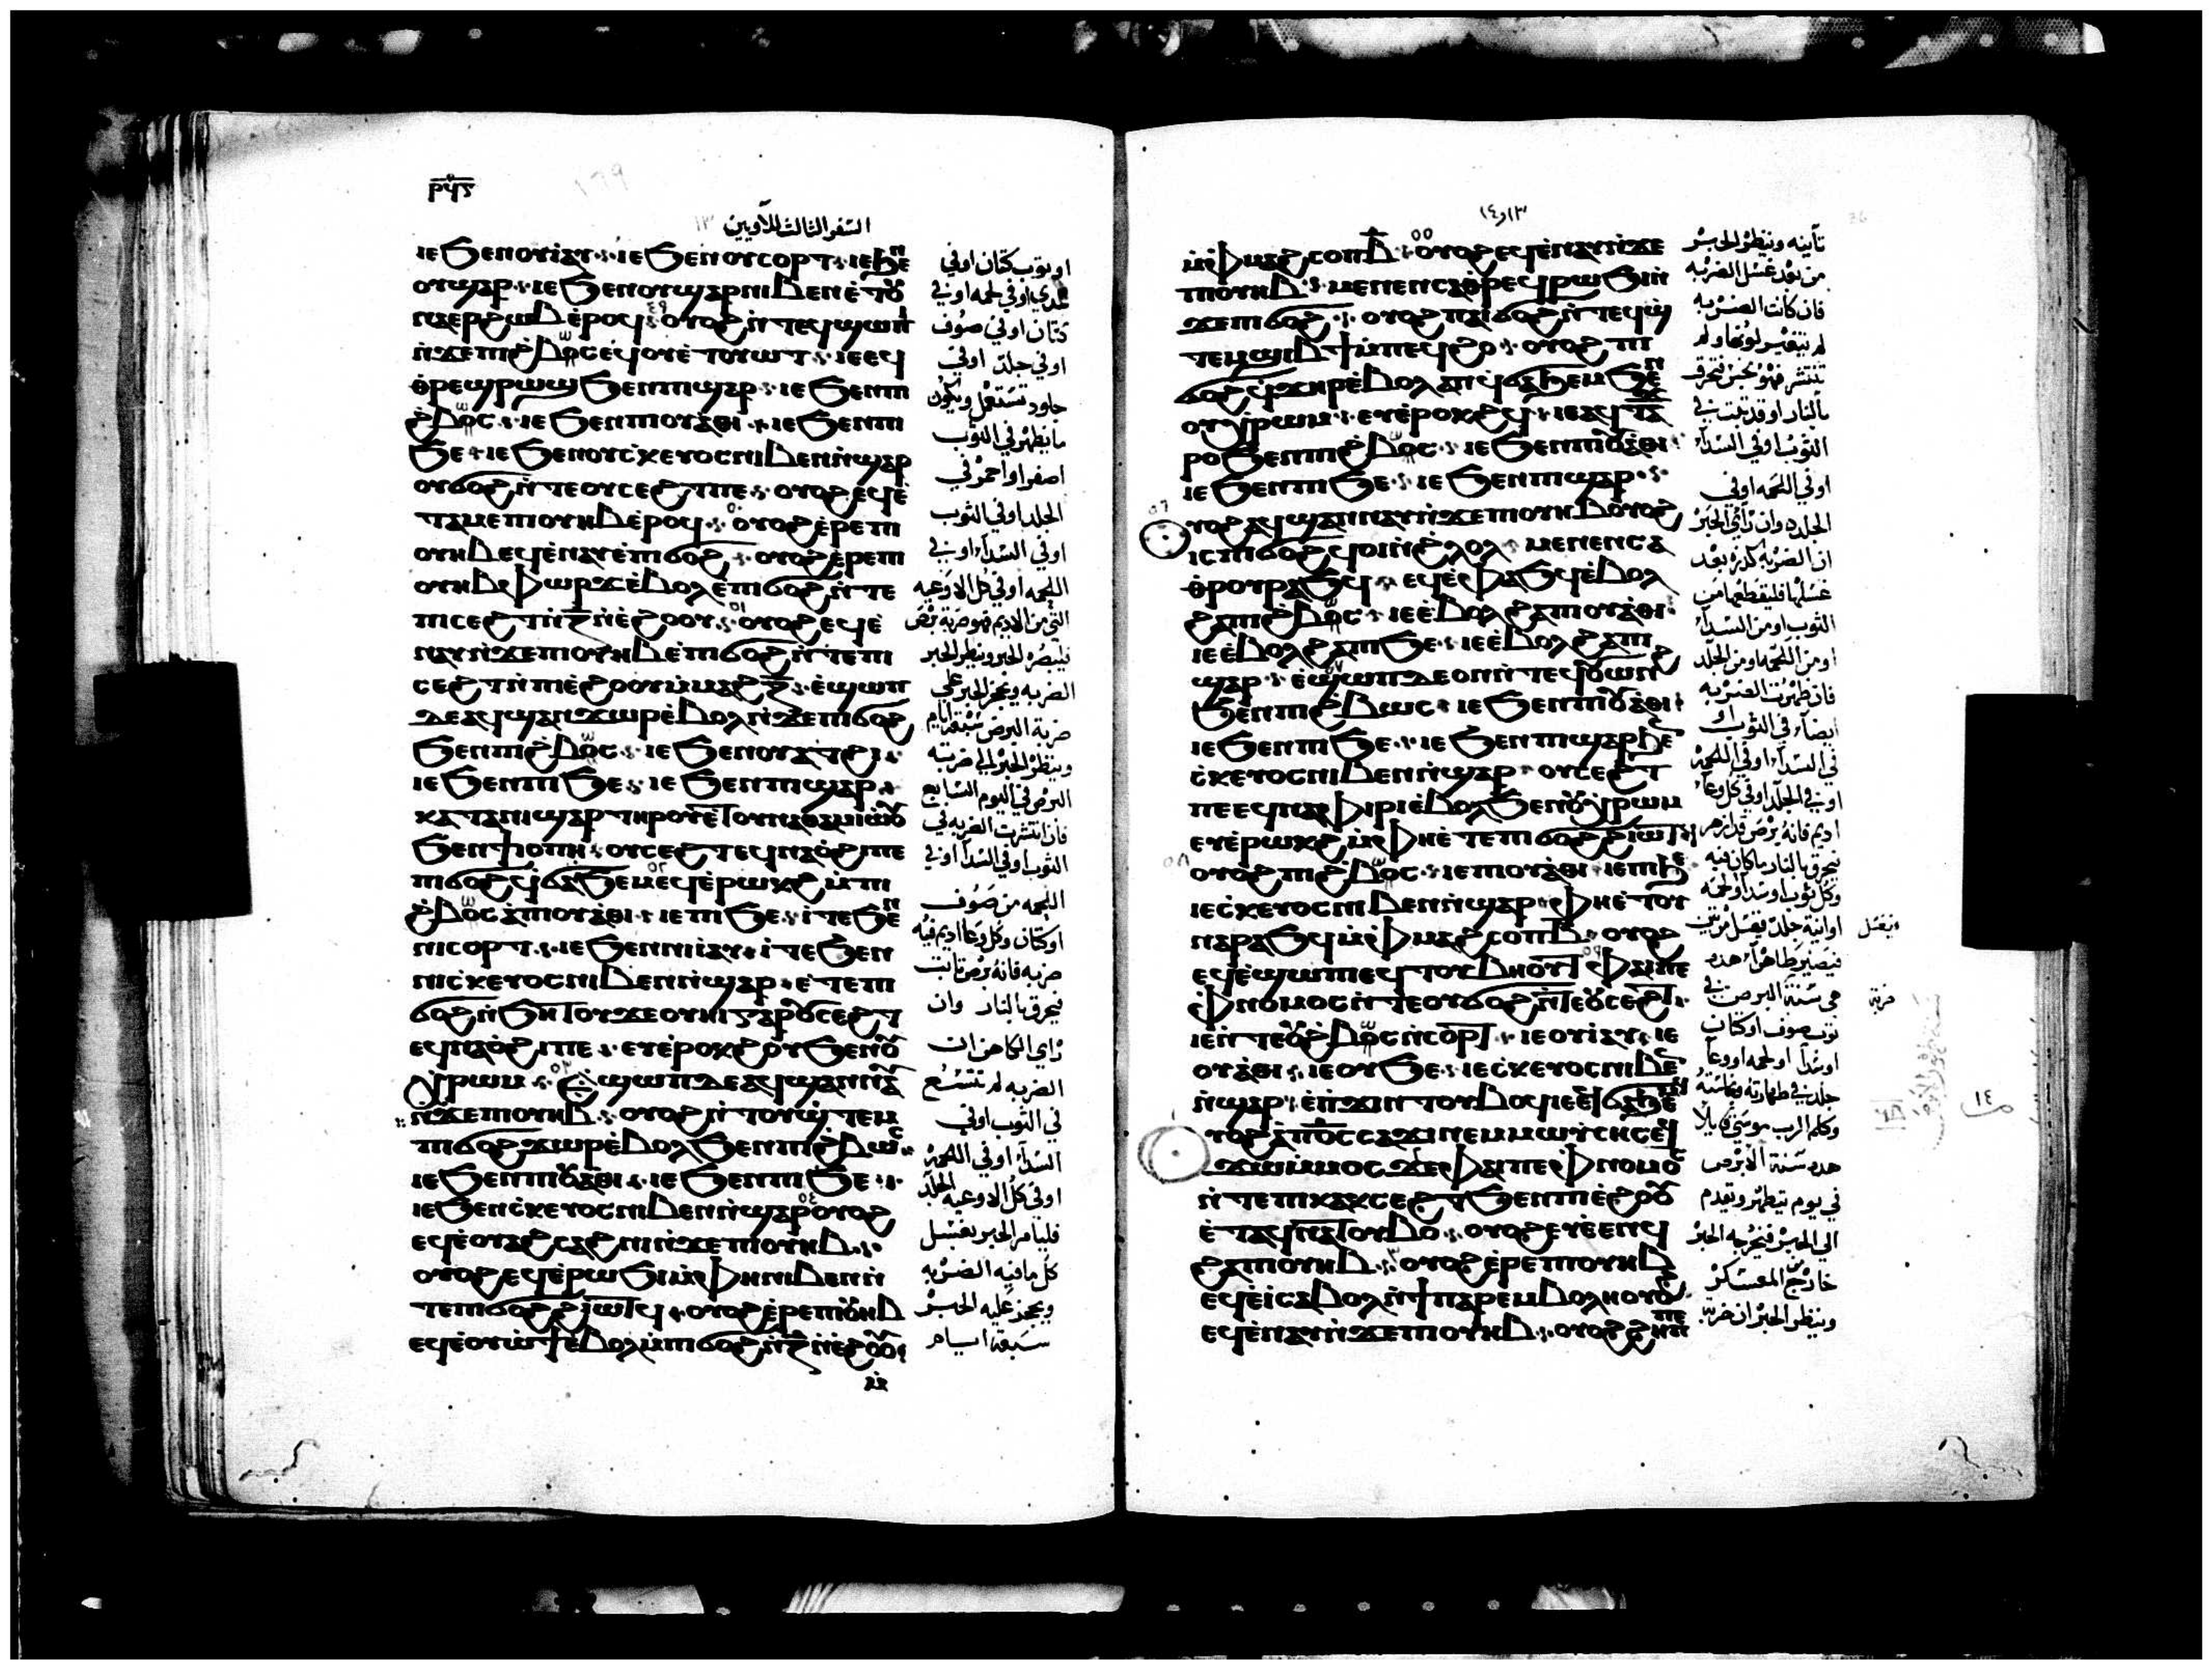 ⲣϥⲋ
السفر الثالث للاويين ١٣
ⲓⲉ ϧⲉⲛ ⲟⲩⲓⲁⲩ ⲓⲉ ϧⲉⲛ ⲟⲩⲥⲟⲣⲧ ⲓⲉ ϧⲉⲛ
ⲟⲩϣⲁⲣ ⲓⲉ ϧⲉⲛ ⲟⲩϣⲁⲣ ⲛⲓⲃⲉⲛ ⲉⲧⲟⲩ
ⲛⲁⲉⲣϩⲱⲃ ⲉⲣⲟϥ ⲟⲩⲟϩ ⲛⲧⲉϥϣⲱⲡⲓ
ⲛϫⲉ ⲡⲓϩⲃⲟⲥ ⲉϥⲟⲩⲉⲧⲟⲩⲱⲧ ⲓⲉ ⲉϥ
ⲑⲣⲉϣⲣⲱϣ ϧⲉⲛ ⲡⲓϣⲁⲣ ⲓⲉ ϧⲉⲛ ⲡⲓ
ϩⲃⲟⲥ ⲓⲉ ϧⲉⲛ ⲡⲓⲟⲩⲁⲑⲓ ⲓⲉ ϧⲉⲛ ⲡⲓ
ϧⲉ ⲓⲉ ϧⲉⲛ ⲟⲩⲥⲕⲉⲩⲟⲥ ⲛⲓⲃⲉⲛ ⲛϣⲁⲣ
ⲟⲩϭⲟϩ ⲛⲧⲉ ⲟⲩⲥⲉϩⲧ ⲡⲉ ⲟⲩⲟϩ ⲉϥⲉ
ⲧⲁⲙⲉ ⲡⲓⲟⲩⲏⲃ ⲉⲣⲟϥ ⲟⲩⲟϩ ⲉⲣⲉ ⲡⲓ
ⲟⲩⲏⲃ ⲉϥⲉⲛⲁⲩ ⲉⲡⲓϭⲟϩ ⲟⲩⲟϩ ⲉⲣⲉ ⲡⲓ
ⲟⲩⲏⲃ ⲫⲱⲣϫ ⲉⲃⲟⲗ ⲉⲡⲓϭⲟϩ ⲛⲧⲉ
ⲡⲓⲥⲉϩⲧ ⲛⲍ ⲛⲉϩⲟⲟⲩ ⲟⲩⲟϩ ⲉϥⲉ
ⲛⲁⲩ ⲛϫⲉ ⲡⲓⲟⲩⲏⲃ ⲉⲡⲓϭⲟϩ ⲛⲧⲉ ⲡⲓ
ⲥⲉϩⲧ ⲛⲡⲓⲉϩⲟⲟⲩ ⲙⲙⲁϩⲍ ⲉϣⲱⲡ
ⲇⲉ ⲁϥϣⲁⲛϫⲱⲣ ⲉⲃⲟⲗ ⲛϫⲉ ⲡⲓϭⲟϩ
ϧⲉⲛ ⲡⲓϩⲃⲟⲥ ⲓⲉ ϧⲉⲛ ⲟⲩⲁⲧϩⲓ
ⲓⲉ ϧⲉⲛ ⲡⲓϧⲉ ⲓⲉ ϧⲉⲛ ⲡⲓϣⲁⲣ
ⲕⲁⲧⲁ ⲛⲓϣⲁⲣ ⲧⲏⲣⲟⲩ ⲉⲧⲟⲩⲛⲁⲑⲁⲙⲓⲱⲟⲩ
ϧⲉⲛ ϯⲓⲟⲡⲏ ⲟⲩⲥⲉϩⲧ ⲉϥⲛⲁⲟϩⲓ ⲡⲉ
ⲡⲓϭⲟϩ ϥϭⲁϧⲉⲙ ⲉϥⲉⲣⲱⲕϩ ⲙⲡⲓ
ϩⲃⲟⲥ ⲁⲡⲓⲟⲩⲁⲑⲓ ⲓⲉ ⲡⲓϧⲉ ⲓⲧⲉ ϧⲉⲛ
ⲛⲓⲥⲟⲣⲧ ⲓⲉ ϧⲉⲛ ⲛⲓⲓⲁⲩ ⲓⲧⲉ ϧⲉⲛ
ⲛⲓⲥⲕⲉⲩⲟⲥ ⲛⲓⲃⲉⲛ ⲛϣⲁⲣ ⲉⲧⲉ ⲡⲓ
ϭⲟϩ ⲛϧⲏⲧⲟⲩ ϫⲉ ⲟⲩⲏⲓ ⲅⲁⲣ ⲟⲩⲥⲉϩⲧ
ⲉϥⲛⲁⲟϩⲓ ⲡⲉ ⲉⲩⲉⲣⲟⲕϩⲟⲩ ϧⲉⲛ ⲟⲩ
ⲭⲣⲱⲙ ⲉϣⲱⲡ ⲇⲉ ⲁϥϣⲁⲛⲛⲁⲩ
ⲛϫⲉ ⲡⲓⲟⲩⲏⲃ ⲟⲩⲟϩ ⲛⲧⲟⲩϣⲧⲉⲙ
ⲡⲓϭⲟϩ ϫⲱⲣ ⲉⲃⲟⲗ ϧⲉⲛ ⲡⲓϩⲃⲱⲥ
ⲓⲉ ϧⲉⲛ ⲡⲓⲟⲩⲁⲑⲓ ⲓⲉ ϧⲉⲛ ⲡⲓϧⲉ
ⲓⲉ ϧⲉⲛ ⲥⲕⲉⲩⲟⲥ ⲛⲓⲃⲉⲛ ⲛϣⲁⲣ ⲟⲩⲟϩ
ⲉϥⲉⲟⲩⲁϩⲥⲁϩⲛⲓ ⲛϫⲉ ⲡⲓⲟⲩⲏⲃ
ⲟⲩⲟϩ ⲉϥⲉⲣⲱϧⲓ ⲙⲫⲏ ⲛⲓⲃⲉⲛ ⲛ
ⲧⲉ ⲡⲓϭⲟϩ ϩⲓⲱⲧϥ ⲟⲩⲟϩ ⲉⲣⲉ ⲡⲓⲟⲩⲏⲃ
ⲉϥⲉⲟⲩⲱϯ ⲉⲃⲟⲗ ⲙⲡⲓϭⲟϩ ⲛⲍ ⲛⲉϩⲟⲟⲩ
او بثوب كتان اوفي
كتان اوفي صوف
اوفي جلد اوفي
جلود تستعمل ويكون
ما يظهر في الثوب
اصفر او احمر في
الجلد اوفي الثوب
اوفي السدا اوفي
اللحمه اوفي كل الاوعيه
فليبصره الحبر وينظر الحبر
الضربه ويحجز الحبر على
ضربة البرص سبعة ايام
وينظر الحبر الى ضربة
البرص في اليوم السابع
فان انتشرت الضربه في
الثوب اوفي السدا اوفي
اللحمه من صوف
او كتان وكل وعا اديم فيه
ضربه فانه برص ثابت
فيحرق بالنار وان
راي الكاهن ان
الضربه لم تتسع
في الثوب اوفي
السدا اوفي اللحمه
اوفي كل الاوعيه الجلد
فليامر الحبر بغسل
كل ما فيه الضربه
ويحجز عليه الحبر
سبعة ايام
١٣و١٤
ⲙⲫⲙⲁϩⲥⲟⲡ ⲃ ⲟⲩⲟϩ ⲉϥⲉⲛⲁⲩ ⲛϫⲉ
ⲡⲓⲟⲩⲏⲃ ⲙⲉⲛⲉⲛⲥⲁ ⲑⲣⲉϥⲣⲱϧⲓ ⲛ
ϫⲉ ⲡⲓϭⲟϩ ⲟⲩⲟϩ ⲡⲁⲓϭⲟϩ ⲛⲧⲉϥϣ
ⲧⲉⲙϣⲓⲃϯ ⲙⲡⲉϥϩⲟ ⲟⲩⲟϩ ⲡⲓ
ϭⲟϩ ϥϫⲏⲣ ⲉⲃⲟⲗ ⲁⲛ ϥϭⲁϧⲉⲙ ϧⲉⲛ
ⲟⲩⲭⲣⲱⲙ ⲉⲩⲉⲣⲟⲕϩϥ ⲓⲉ ⲁϥⲧⲁ
ϫⲣⲟ ϧⲉⲛ ⲡⲓϩⲃⲟⲥ ⲓⲉ ϧⲉⲛ ⲡⲓⲟⲩⲁⲑⲓ
ⲓⲉ ϧⲉⲛ ⲡⲓϧⲉ ⲓⲉ ϧⲉⲛ ⲡⲓϣⲁⲣ
ⲟⲩⲟϩ ⲁϥϣⲁⲛⲛⲁⲩ ⲛϫⲉ ⲡⲓⲟⲩⲏⲃ ⲟⲩⲟϩ
ⲓⲥ ⲡⲓϭⲟϩ ϥⲟⲓ ⲛϩⲗⲟⲗ ⲙⲉⲛⲉⲛⲥⲁ
ⲑⲣⲟⲩⲣⲁϧϥ ⲉϥⲉⲫⲁϧϥ ⲉⲃⲟⲗ
ϩⲁ ⲡⲓϩⲃⲟⲥ ⲓⲉ ⲉⲃⲟⲗ ϩⲁ ⲡⲓⲟⲩⲁⲑⲓ
ⲓⲉ ⲉⲃⲟⲗ ϩⲁ ⲡⲓϧⲉ ⲓⲉ ⲉⲃⲟⲗ ϩⲁ ⲡⲓ
ϣⲁⲣ ⲉϣⲱⲡ ⲇⲉ ⲟⲛ ⲛⲧⲉϥⲟⲩⲱⲛϩ
ϧⲉⲛ ⲡⲓϩⲃⲱⲥ ⲓⲉ ϧⲉⲛ ⲡⲓⲟⲩⲁⲑⲓ
ⲓⲉ ϧⲉⲛ ⲡⲓϧⲉ ⲓⲉ ϧⲉⲛ ⲡⲓϣⲁⲣ ϧⲉⲛ
ⲥⲕⲉⲩⲟⲥ ⲛⲓⲃⲉⲛ ⲛϣⲁⲣ ⲟⲩⲥⲉϩⲧ
ⲡⲉ ⲉϥⲛⲁⲫⲓⲣⲓ ⲉⲃⲟⲗ ϧⲉⲛ ⲟⲩⲭⲣⲱⲙ
ⲉⲩⲉⲣⲱⲕϩ ⲙⲫⲏ ⲉⲧⲉ ⲡⲓϭⲟϩ ϩⲓⲱⲧϥ
ⲟⲩⲟϩ ⲡⲓϩⲃⲟⲥ ⲓⲉ ⲡⲓⲟⲩⲁⲑⲓ ⲓⲉ ⲡⲓϧⲉ
ⲓⲉ ⲥⲕⲉⲩⲟⲥ ⲛⲓⲃⲉⲛ ⲛϣⲁⲣ ⲫⲏ ⲉⲧⲟⲩ
ⲛⲁⲣⲁϧϥ ⲙⲫⲙⲁϩⲥⲟⲡ ⲃ ⲟⲩⲟϩ
ⲉϥⲉϣⲱⲡⲓ ⲉϥⲧⲟⲩⲃⲏⲟⲩⲧ ⲫⲁⲓ ⲡⲉ
ⲫⲛⲟⲙⲟⲥ ⲛⲧⲉ ⲟⲩϭⲟϩ ⲛⲧⲉ ⲟⲩⲥⲉϩⲧ
ⲓⲉ ⲛⲧⲉ ⲟⲩϩⲃⲟⲥ ⲛⲥⲟⲣⲧ ⲓⲉ ⲟⲩⲓⲁⲩ ⲓⲉ
ⲟⲩⲁⲑⲓ ⲓⲉ ⲟⲩϧⲉ ⲓⲉ ⲥⲕⲉⲩⲟⲥ ⲛⲓⲃⲉⲛ
ⲛϣⲁⲣ ⲉⲡϫⲓⲛⲧⲟⲩⲃⲟϥ ⲓⲉ ⲉⲧϭⲁϧⲉⲙϥ
ⲟⲩⲟϩ ⲁ ⲡϭⲟⲓⲥ ⲥⲁϫⲓ ⲛⲉⲙ ⲙⲱⲩⲥⲏⲥ ⲉϥ
ϫⲱ ⲙⲙⲟⲥ ϫⲉ ⲫⲁⲓ ⲡⲉ ⲫⲛⲟⲙⲟⲥ
ⲛⲧⲉ ⲡⲓⲕⲁⲕⲥⲉϩⲧ ϧⲉⲛ ⲡⲓⲉϩⲟⲟⲩ
ⲉⲧⲁϥⲛⲁⲧⲟⲩⲃⲟ ⲟⲩⲟϩ ⲉⲩⲉⲉⲛϥ
ϩⲁ ⲡⲓⲟⲩⲏⲃ ⲟⲩⲟϩ ⲉⲣⲉ ⲡⲓⲟⲩⲏⲃ
ⲉϥⲉⲓ ⲥⲁⲃⲟⲗ ⲛϯⲡⲁⲣⲉⲙⲃⲟⲗⲏ ⲟⲩⲟϩ
ⲉϥⲉⲛⲁⲩ ⲛϫⲉ ⲡⲓⲟⲩⲏⲃ ⲟⲩⲟϩ ϩⲏⲡⲡⲉ
وينظر الحبر
من بعد غسل الضربه
فان كانت الضربه
لم يتغير لونها ولم
تنتشر فهو نجس فتحرق
بالنار او قد ثبت في
الثوب اوفي السدا
اوفي اللحمه اوفي
الجلده وان راي الحبر
ان الضربه كدره بعد
غسلها فليقطعها من
الثوب او من السدا
او من اللحمه او من الجلد
فان ظهرت الضربه
ايضا في الثوب او
في السدا اوفي اللحمه
اوفي الجلد اوفي كل وعا
اديم فانه برص
فيحرق بالنار ما كان فيه
وكل ثوب او سدا او لحمه
او انية جلد يغسل مرتين
فيصير طاهرا هذه
هي سنة البرص في
ثوب صوف او كتان
او سدا او لحمه او وعا
جلد في طهارته ونجاسته
وكلم الرب موسى قايلا
هذه سنة الابرص
في يوم يتطهر ويقدم
الى الحبر فيخرج الحبر
خارج من المعسكر
وينظر الحبر ان ضربة
ضربة
١٤